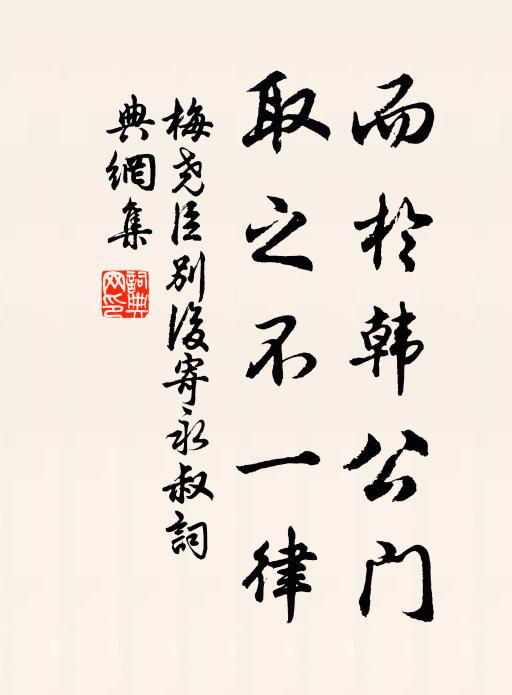 而於韩公门
取之不一律
梅尧臣别後寄永叔詞
典網集
詞典網印